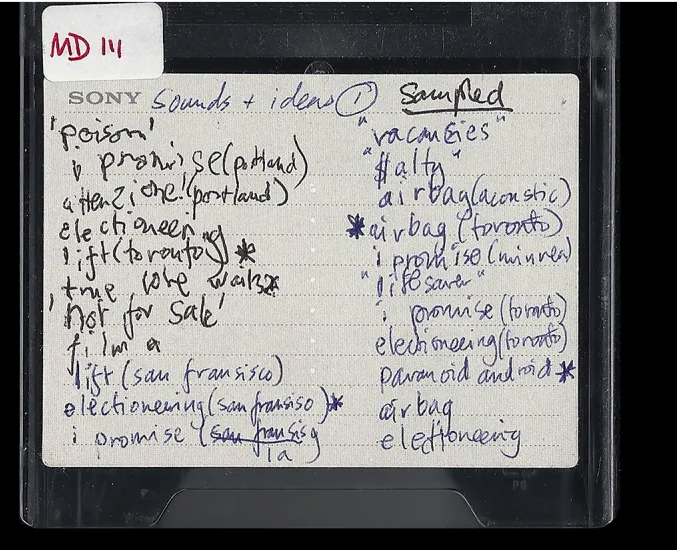 MD 111
SONY sounds + ideas ① Sampled
'poison'
i promise (portland)
attenzione! (portland)
electioneering
lift (toronto) *
true love waits *
'not for sale'
film a
lift (san fransisco)
electioneering (san fransiso) *
i promise (san fransis
la
"vacancies"
"$alty"
airbag (acoustic)
*airbag (toronto)
i promise (minnea)
"lifesaver"
i promise (toronto)
electioneering (toronto)
paranoid android *
airbag
electioneering